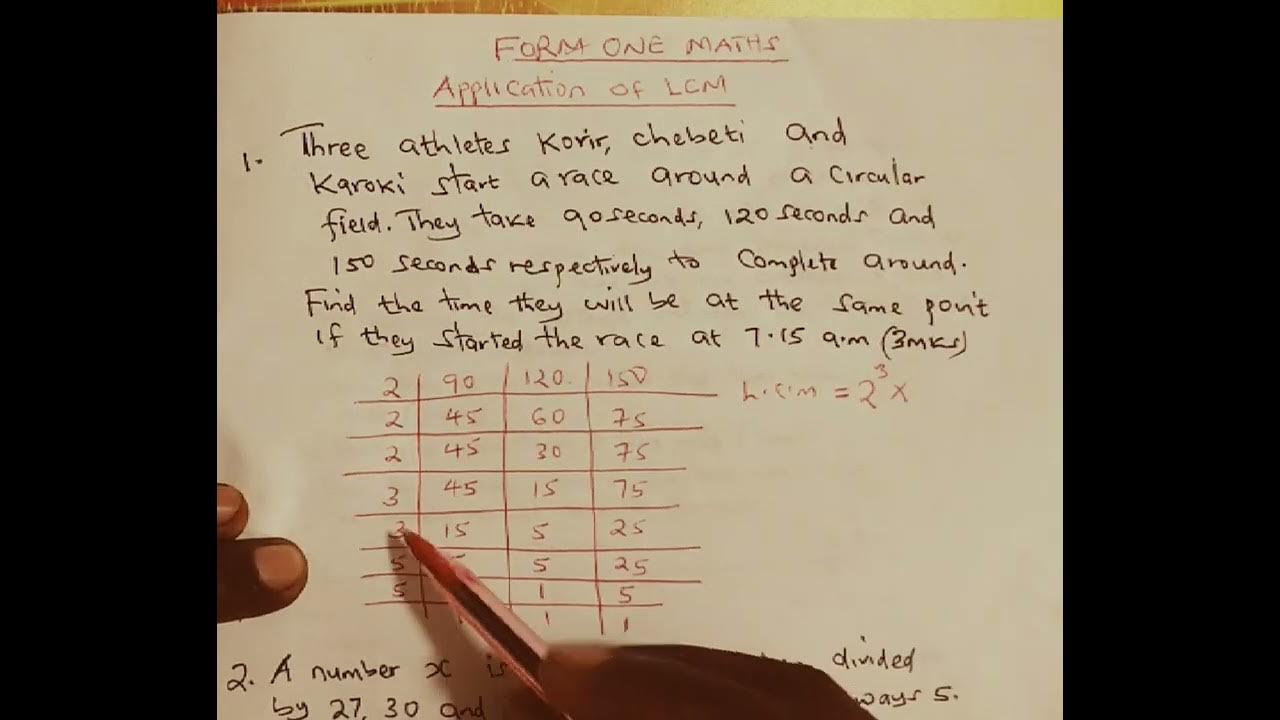 FORM ONE MATHS
Application of LCM
1. Three athletes Korir, chebeti and
Karoki start a race around a circular
field. They take 90 seconds, 120 seconds and
150 seconds respectively to complete around.
Find the time they will be at the same point
if they started the race at 7.15 a.m (3mks)
2 90 120. 150 L.C.M = 2³ x
2 45 60 75
2 45 30 75
3 45 15 75
3 15 5 25
5 5 25
5 1 5
1 1
2. A number x is divided
by 27, 30 and 5.